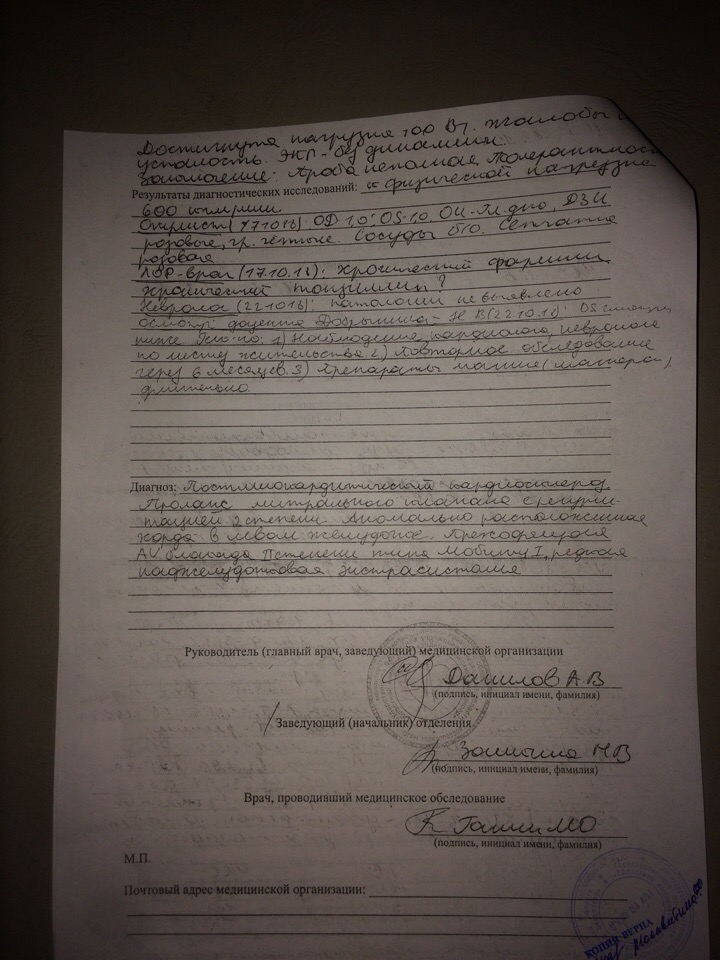 Достигнута нагрузка 100 Вт. жалобы
усталость. ЭКГ - без динамики.
Заключение: Проба неполная. Толерантность
Результаты диагностических исследований: к физической нагрузке
600
Окулист (17.10.18): OD 1,0; OS-1,0. Гл. дно, ДЗН
розовые, гр. чёткие. Сосуды б/о. Сетчатка
розовая
ЛОР-врач (17.10.18): Хронический фарингит
хронический тонзиллит?
Невролог (22.10.18): патологии не выявлено
осмотр доцента (22.10.18): DS смотри
ниже 1) Наблюдение кардиолога, невролога
по месту жительства. 2) Повторное обследование
через 6 месяцев. 3) Препараты магния
длительно.
Диагноз: Постмиокардитический кардиосклероз.
Пролапс митрального клапана с регурги-
тацией 2 степени. Аномально расположенная
хорда в левом желудочке. Преходящая
AV блокада II степени типа Мобитц I, редкая
наджелудочковая экстрасистолия
Руководитель (главный врач, заведующий) медицинской организации
Данилов А.В
(подпись, инициал имени, фамилия)
Заведующий (начальник) отделения
(подпись, инициал имени, фамилия)
Врач, проводивший медицинское обследование
(подпись, инициал имени, фамилия)
М.П.
Почтовый адрес медицинской организации:
КОПИЯ ВЕРНА